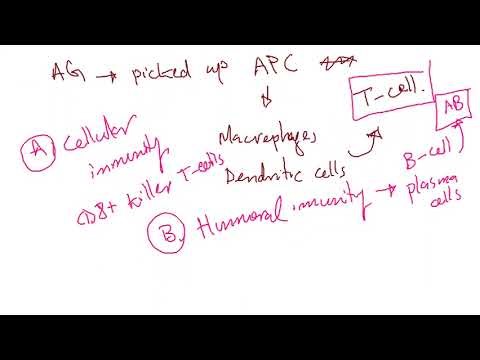 AG → picked up APC
T-cell.
AB
Macrophages
Dendritic cells
A Cellular
immunity
CD8+ killer T-cells
B. Humoral imunity → B-cell
plasma
cells